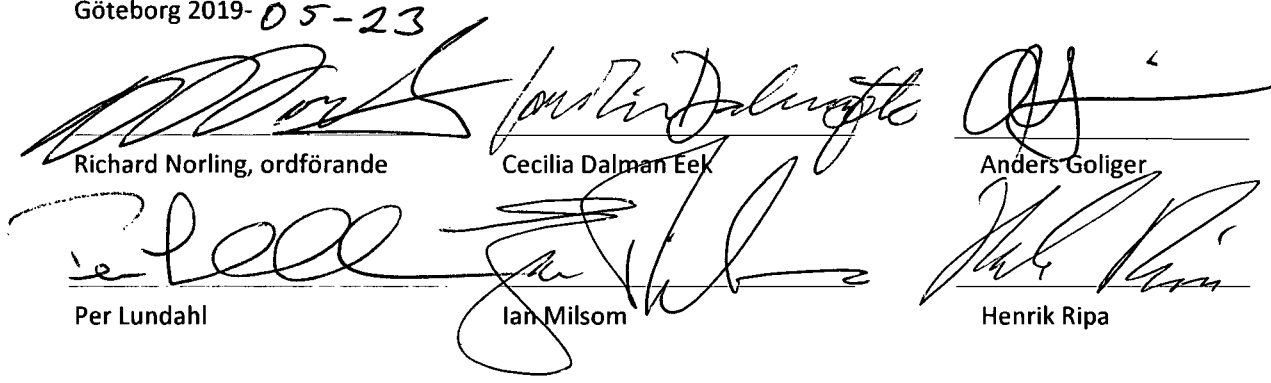 Göteborg 2019-05-23
Richard Norling, ordförande Cecilia Dalman Eek Anders Goliger
Per Lundahl Ian Milsom Henrik Ripa